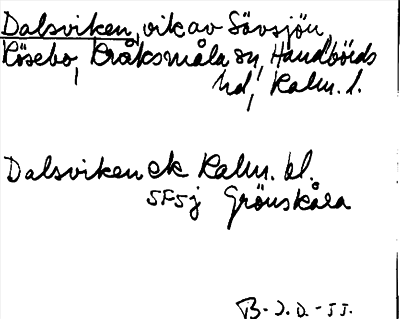 Dalsviken, vik av Sävsjön,
Rösebo, Kråksmåla sn, Handbörds
hd, Kalm. l.
Dalsviken ek Kalm. bl.
5F5j Grönskåra
B-J.D.-55.